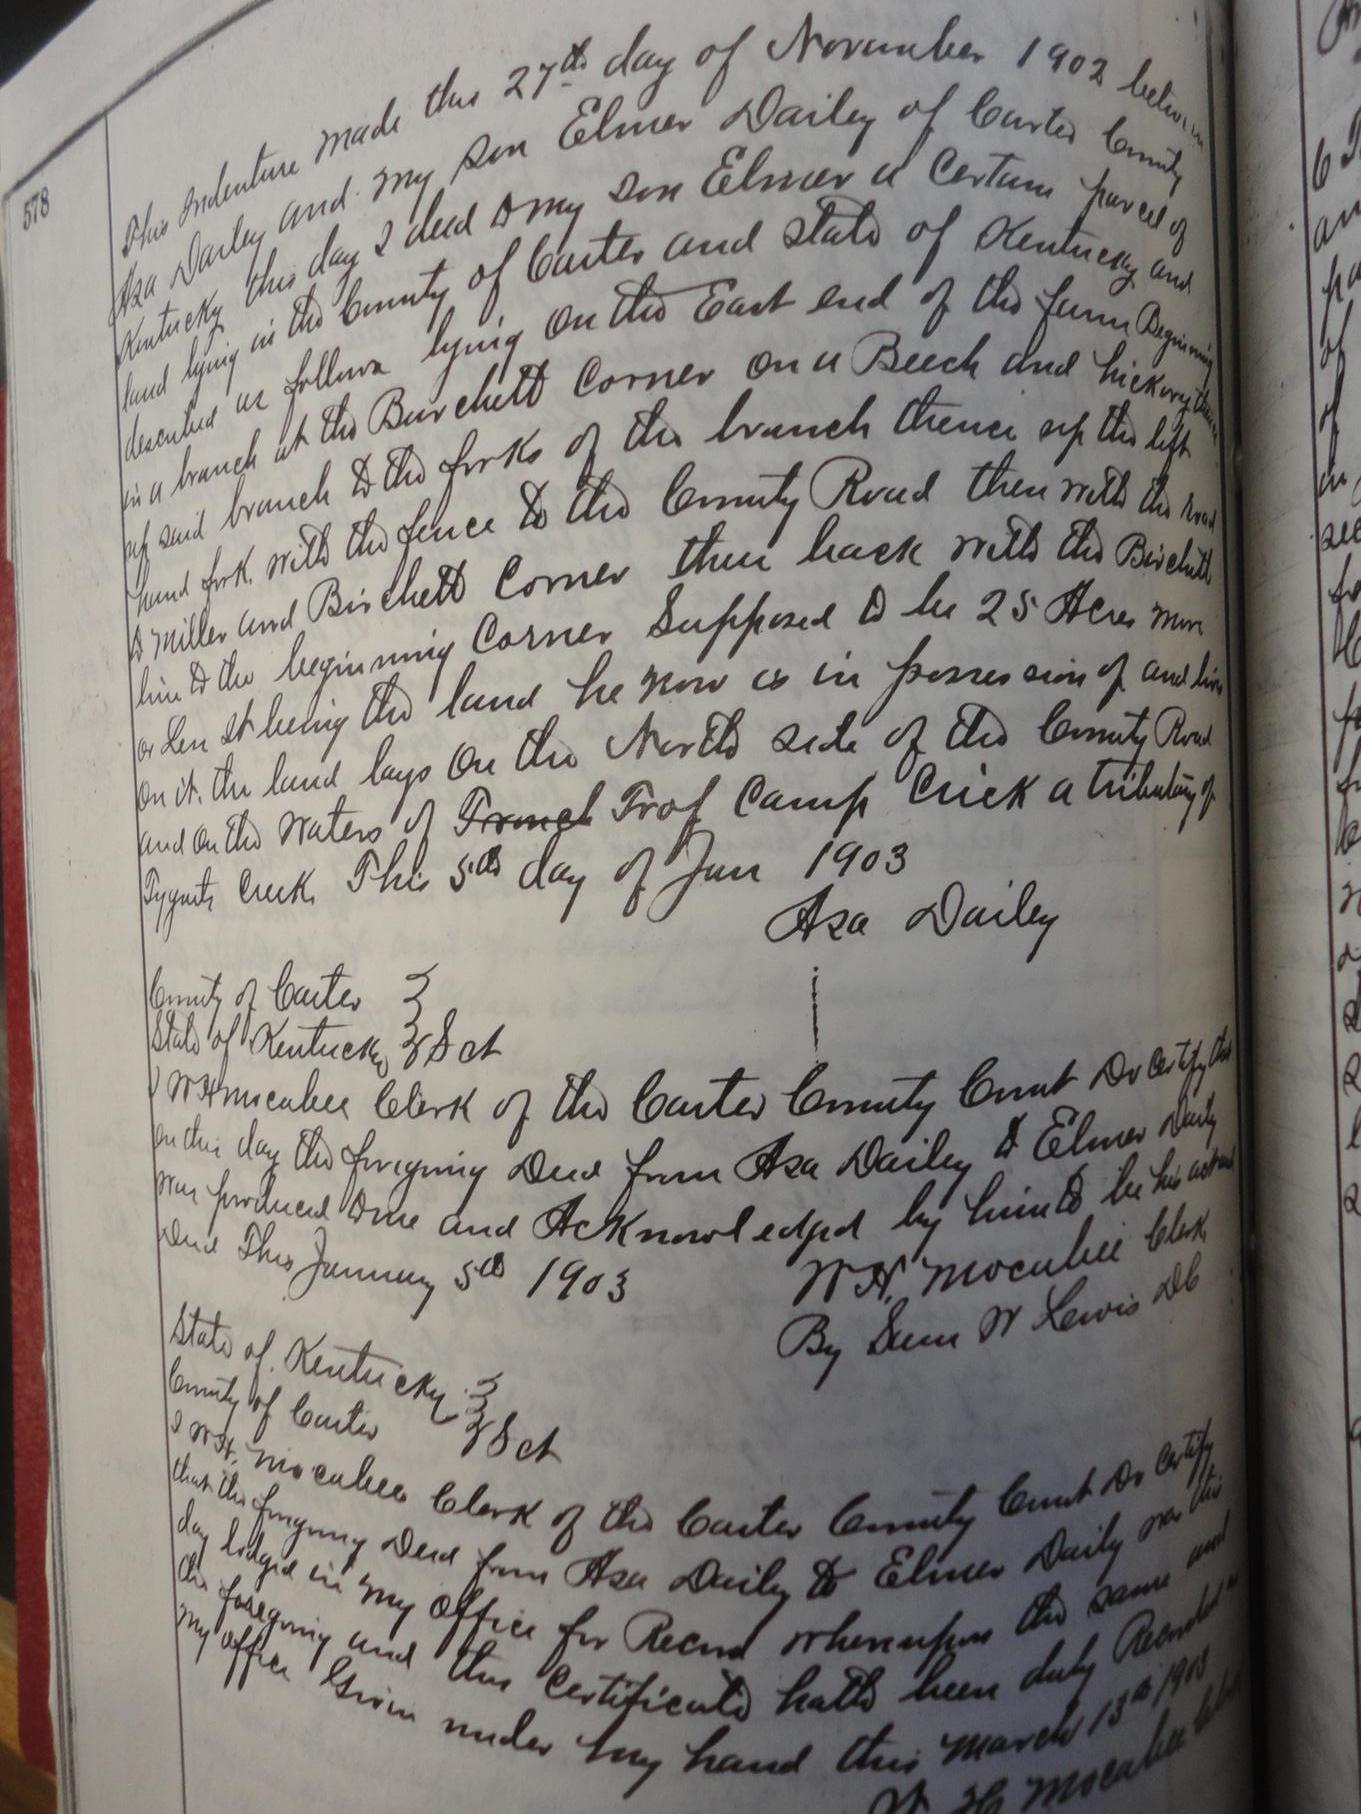 578
This Indenture made this 27th day of November 1902 between
Asa Dailey and my son Elmer Dailey of Carter County
Kentucky this day I deed to my son Elmer a Certain parcel of
land lying in the County of Carter and state of Kentucky and
described as follows lying on the East end of the farm Beginning
in a branch at the Burchett Corner on a Beech and hickory thence
up said branch to the forks of the branch thence up the left
hand fork with the fence to the County Road then with the road
to Miller and Birchett Corner then back with the Birchett
line to the beginning Corner Supposed to be 25 Acres more
or Less It being the land he now is in possession of and lives
on it. the land lays on the North side of the County Road
and on the waters of Trof Camp Crick a tributary of
Tygarts Creek This 5th day of Jan 1903
Asa Dailey
County of Carter
State of Kentucky Sct
I W H Mocabee Clerk of the Carter County Court Do Certify that
on this day the foregoing Deed from Asa Dailey to Elmer Daily
was produced to me and Acknowledged by him to be his act and
Deed This January 5th 1903
W. H. Mocabee Clerk
By Sam W Lewis DC
State of Kentucky
County of Carter Sct
I W. H. Mocabee Clerk of the Carter County Court Do Certify
that the foregoing Deed from Asa Daily to Elmer Daily was this
day lodged in my office for Record whereupon the same and
the foregoing and this Certificate hath been duly Recorded in
my office Given under my hand this March 13th 1903
W H Mocabee Clerk